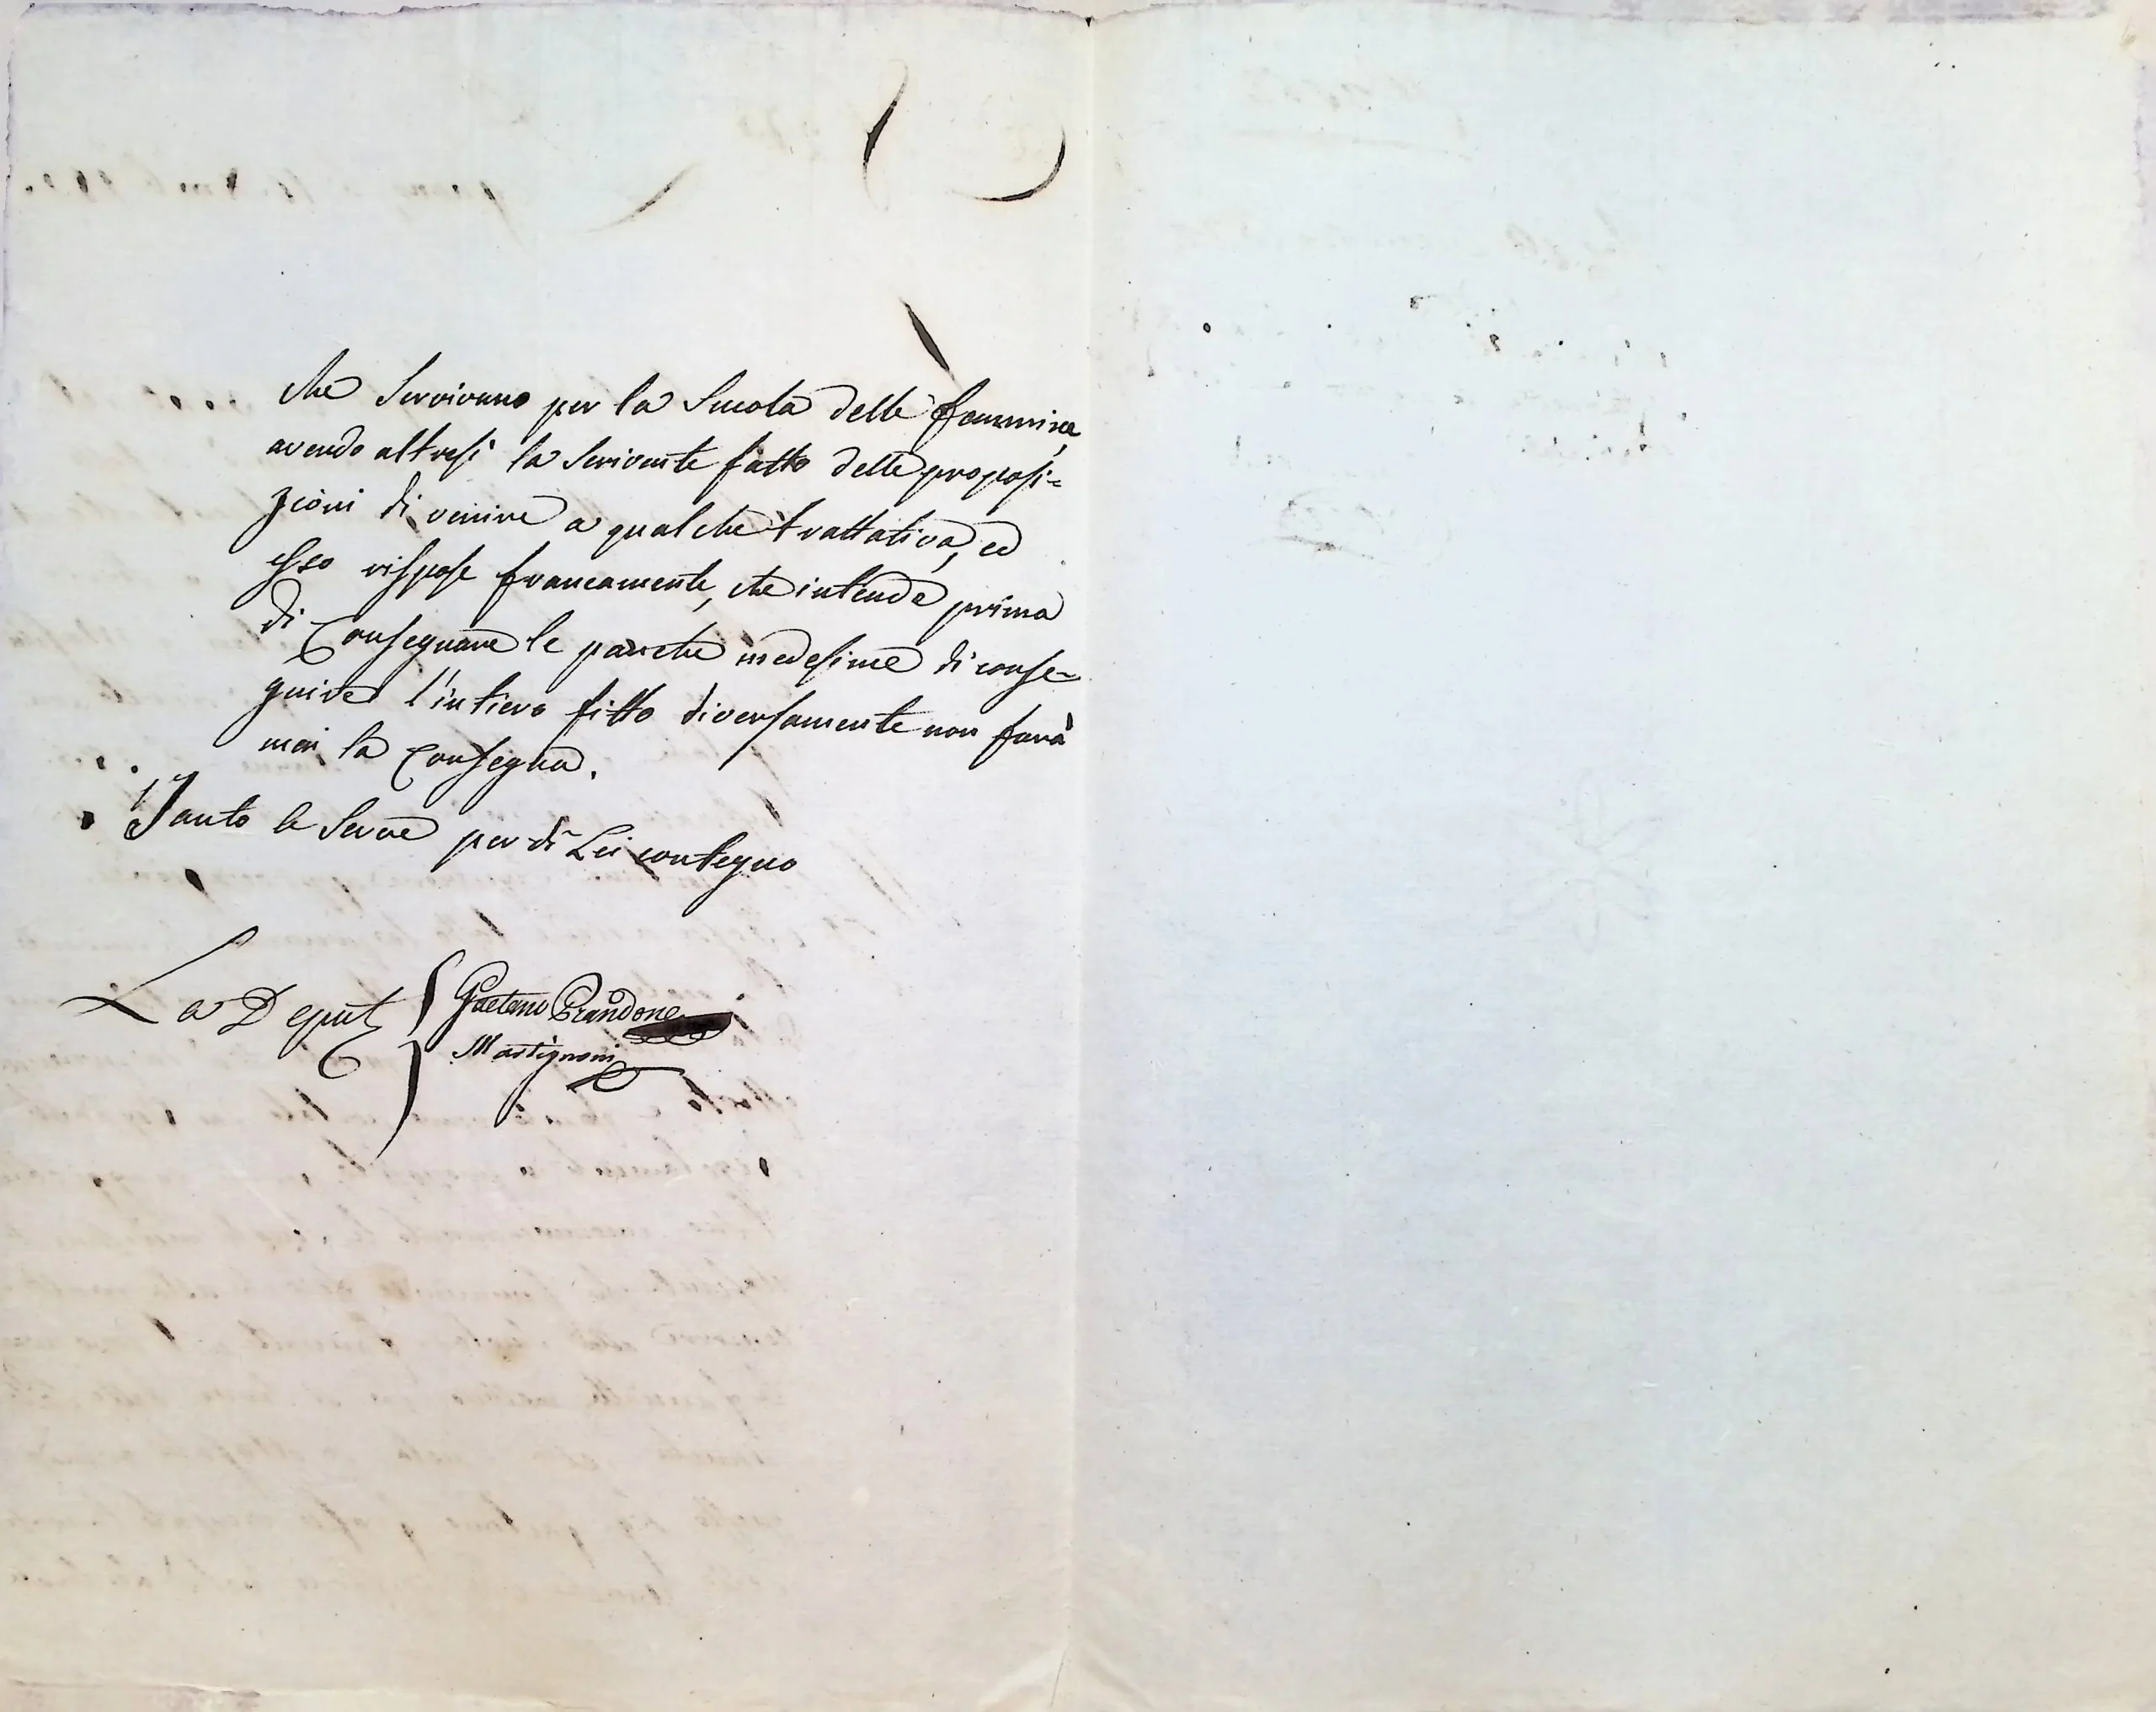 che servivano per la Scuola delle femmine,
avendo altresì la scrivente fatto delle proposi=
zioni di venire a qualche trattativa, ed
esso rispose francamente, che intende prima
di Consegnare le panche medesime di conse=
guire l'intiero fitto diversamente non farà
mai la Consegna.
Tanto le serve per di Lei contegno
La Deput
Gaetano Brandone
Martignoni